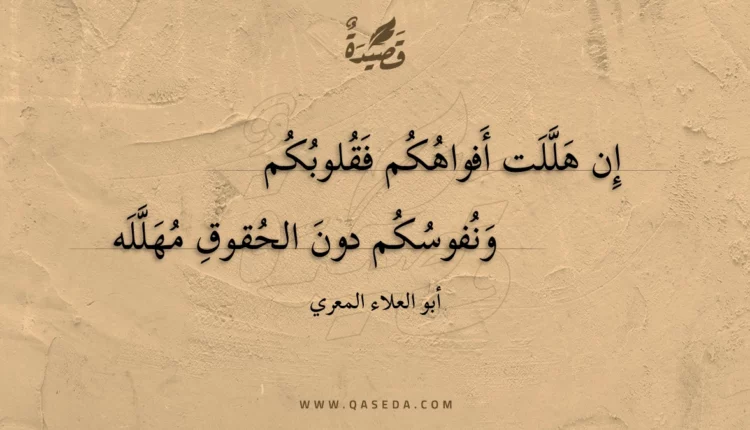 قَصِيدَةٌ
إِن هَلَّلَت أَفواهُكُم فَقُلوبُكُم
وَنُفوسُكُم دونَ الحُقوقِ مُهَلَّلَه
أبو العلاء المعري
WWW.QASEDA.COM